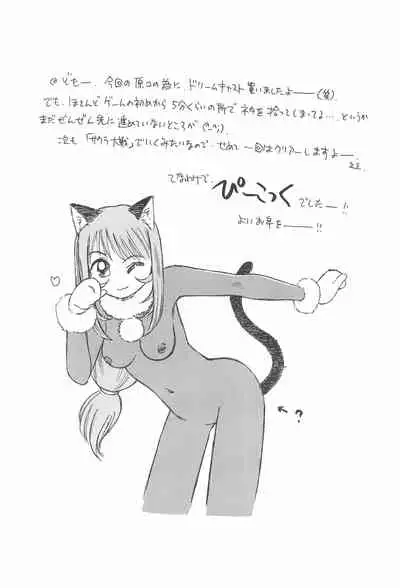 どもー、今回の原コの為に、ドリームキャスト買いましたよ――(笑)
でも、ほとんどゲームの初めから5分くらいの所でネタを拾ってしまってよ…、というか
まだぜんぜん先に進めていないところが(^_^;)
次も「サクラ大戦」でいくみたいなので、せめて一回はクリアーしますよ―。
てなわけで、
ぴーこっく
でした―!!
よいお年を――!!
←?